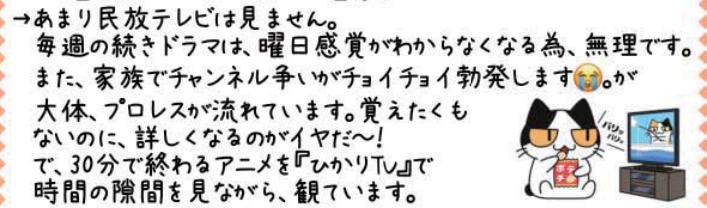 →あまり民放テレビは見ません。
毎週の続きドラマは、曜日感覚がわからなくなる為、無理です。
また、家族でチャンネル争いがチョイチョイ勃発します😭。が
大体、プロレスが流れています。覚えたくも
ないのに、詳しくなるのがイヤだ〜!
で、30分で終わるアニメを『ひかりTV』で
時間の隙間を見ながら、観ています。
バリッ
バリッ
ポテチ